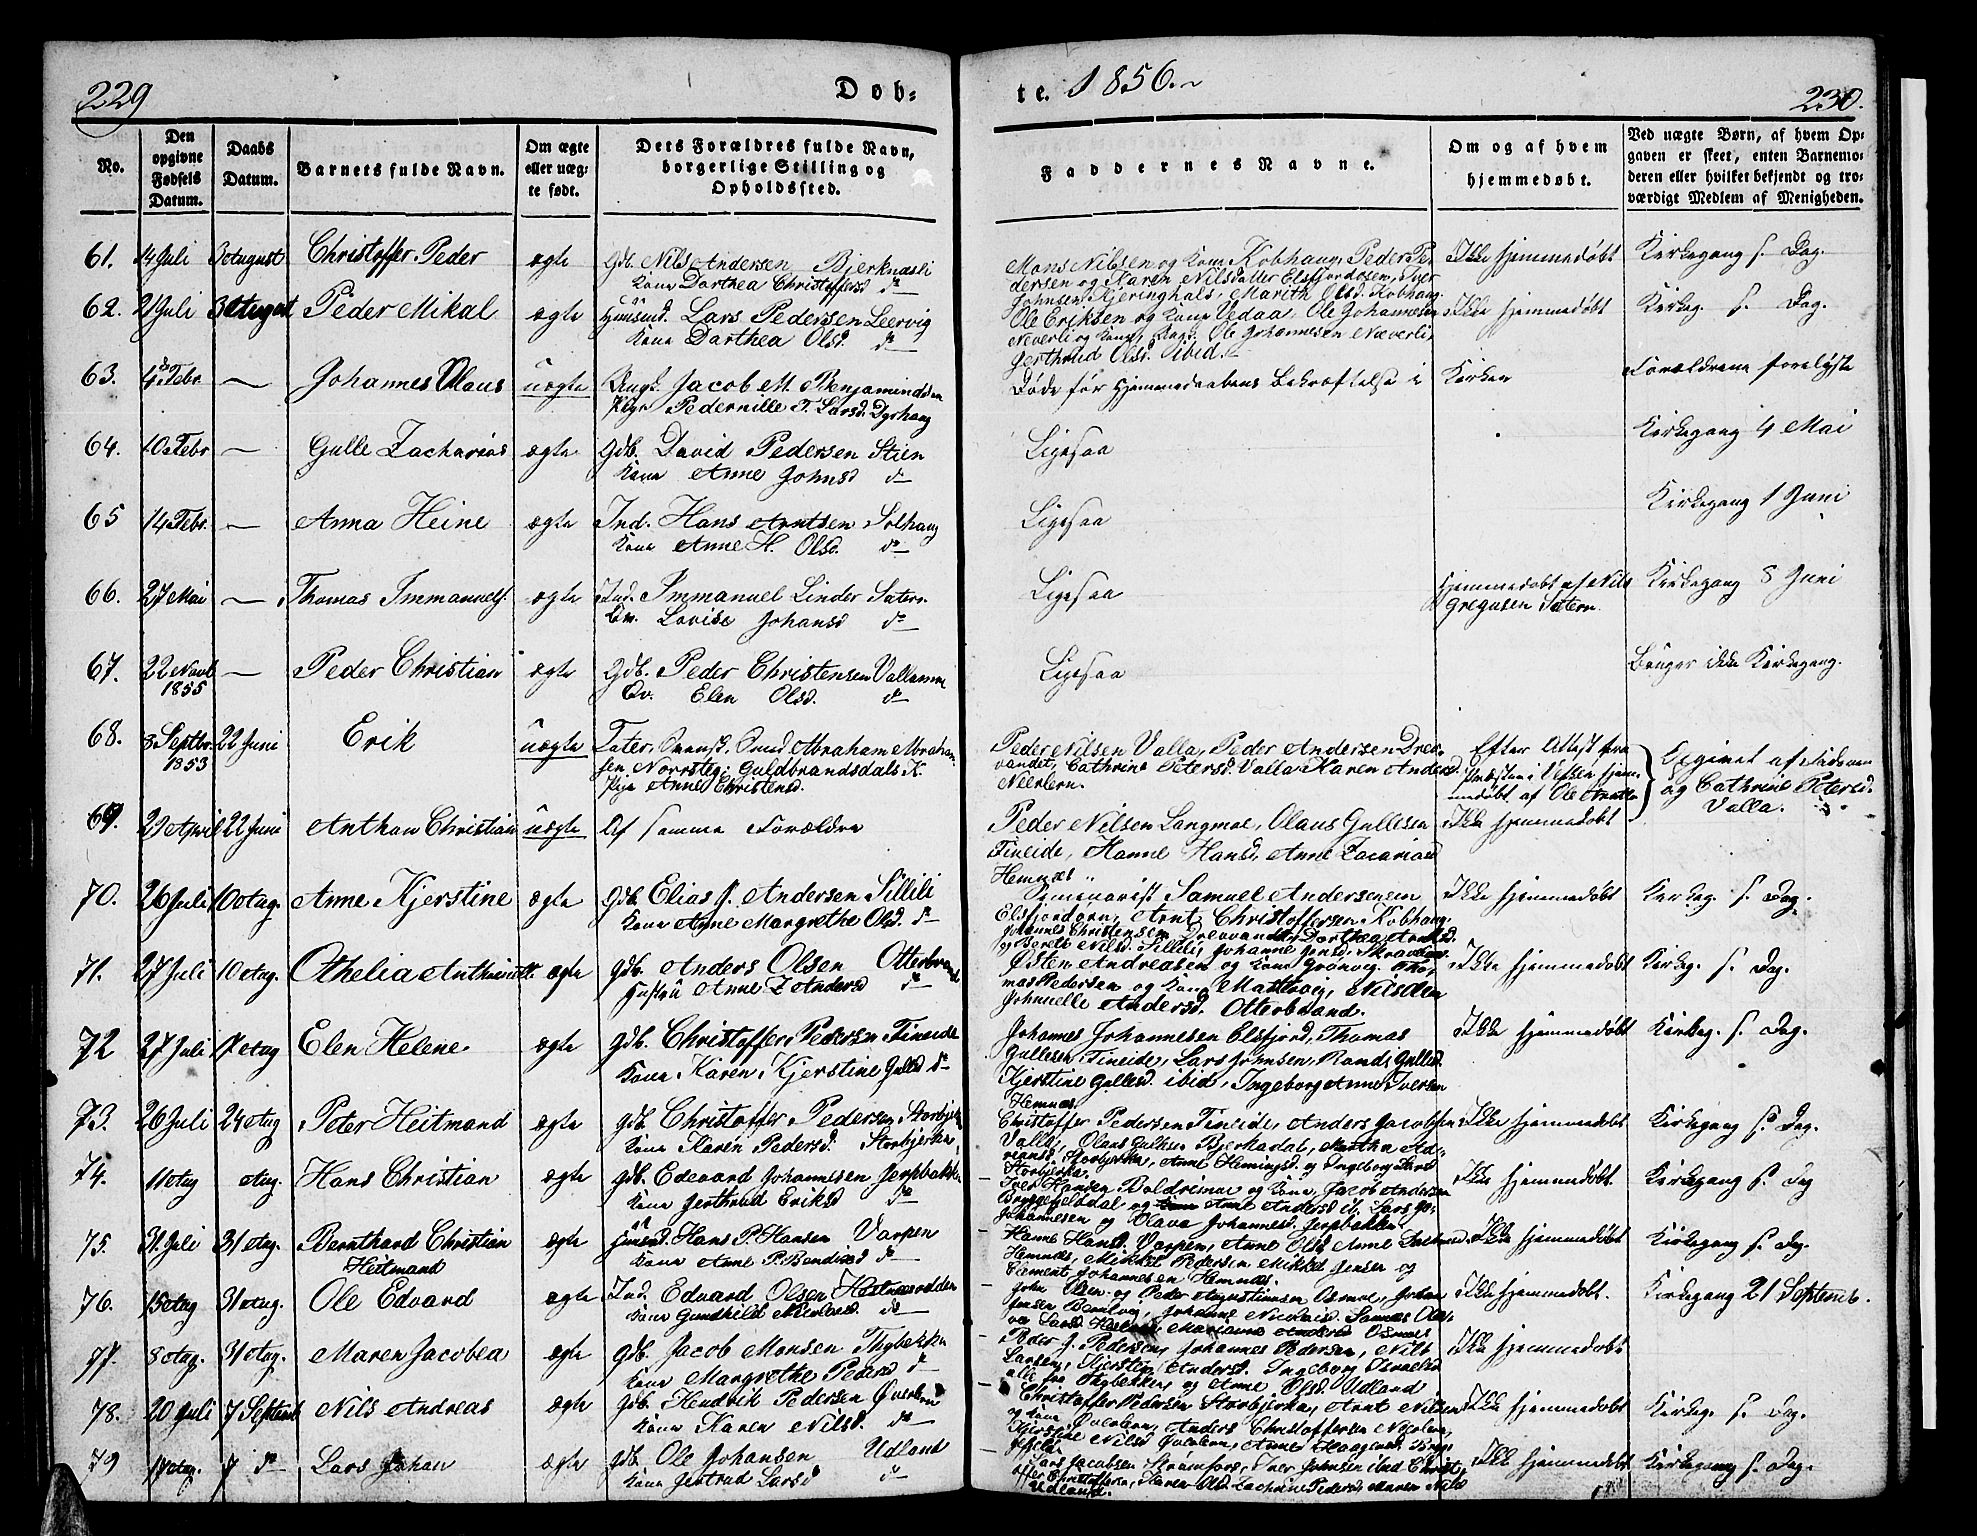 229
Døb-
te. 1856.
230.
No.
Den opgivne Fødsels Datum.
Daabs Datum.
Barnets fulde Navn.
Om ægte eller uægte født.
Dets Forældres fulde Navn, borgerlige Stilling og Opholdssted.
Faddernes Navne.
Om og af hvem hjemmedøbt.
Ved uægte Børn, af hvem Opgaven er skeet, enten Barnemoderen eller hvilket bekjendt og troværdigt Medlem af Menigheden.
61. 14 Juli 3 August Christoffer Peder ægte Gdb. Nils Andersen Bjerknesli
Kone Dorthea Christoffersd do
Mons Nilsen og Kone Kobhaug, Peder Pe
dersen og Karen Nilsdatter Elsfjordosen, Iver
Johnsen Kjeringhals, Marith Olsd. Kobhaug.
Ikke hjemmedøbt Kirkegang s. Dag.
62. 21 Juli 3 August Peder Mikal ægte Huusmd. Lars Pedersen Leervig
Kone Dorthea Olsd. do
Ole Eriksen og Kone Vedaa, Ole Johannesen
Neverli og Kone, Ole Johannesen Næverli,
Gerthrud Olsd. ibid.
Ikke hjemmedøbt Kirkeg. s. Dag.
63. 4 Febr. — Johannes Olaus uægte Ungk. Jacob M. Benjaminsen
Pige Pedernille T. Larsd. Dyrhaug
Døde før Hjemmedaabens Bekræftelse i Kirken Forældrene foreløste
64. 10 Febr — Gulle Zacharias ægte Gdb. David Pedersen Stien
Kone Anne Johnsd do
Ligesaa
Kirkegang 4 Mai
65 14 Febr. — Anna Heine ægte Ind. Hans Arntsen Solhaug
Kone Anne H. Olsd. do
Ligesaa
Kirkegang 1 Juni
66. 27 Mai — Thomas Immanuels. ægte Ind. Immanuel Linder Sætern
Qv. Lovise Johansd do
Ligesaa
Hjemmedøbt af Nils
Gregusen Sætern.
Kirkegang 8 Juni
67. 22 Novb 1855 — Peder Christian ægte Gdb. Peder Christensen Vallamoe
Qv. Elen Olsd. do
Ligesaa
Bruger ikke Kirkegang.
68. 3 Septbr. 1853 22 Juni Erik uægte Tater, Svensk. Abraham Abraham
sen Norrsteg, Guldbrandsdals
Pige Anne Christensd.
Peder Nilsen Valla, Peder Andersen Drev
vandet, Cathrine Petersd. Valla, Karen Andersd.
Neerlern.
Efter Attest fra
Præsten i Vefsen hjem
medøbt af Ole
Opgivet af Faderen
og Cathrine Petersd.
Valla.
69. 29 April 22 Juni Anthon Christian uægte Af samme Forældre
Peder Nilsen Langmoe, Olaus Gullesen
Fineide, Hanne Hansd, Anne Zacariasd
Hemnæs
Ikke hjemmedøbt
70. 26 Juli 10 Aug. Anne Kjerstine ægte Gdb. Elias J. Andersen Sillili
Kone Anne Margrethe Olsd. do
Seminarist Samuel Andersensen
Elsfjordgrn, Arnt Christoffersen Kobhaug,
Johannes Christensen Drevvandet, Dorthea Arntsd.
Ikke hjemmedøbt Kirkeg. s. Dag.
71. 27 Juli 10 Aug. Othelia Anthonette. ægte Gdb. Anders Olsen Otterbrand
Hustru Anne Z. Andersd do
Østen Andreasen og Kone Grønvig, Tho
mas Pedersen og Kone Mastervig, Nils
Johnnelle Andersd. Otterbrand.
Ikke hjemmedøbt Kirkeg. s. Dag.
72 27 Juli 17 Aug Elen Helene. ægte Gdb. Christoffer Pedersen Fineide
Kone Karen Kjerstine Gulled do
Johannes Johannesen Elsfjord, Thomas
Gullesen Fineide, Lars Jonnsen, Randi Gullesd.
Kjerstine Gullesd. ibid, Ingeborg Anne Iversen
Hemnæs.
Ikke hjemmedøbt Kirkeg. s. Dag.
73. 26 Juli 24 Aug Peter Heitmand ægte Gdb Christoffer Pedersen Storbjerka
Kone Karen Pedersd. Storbjerka
Christoffer Pedersen Fineide, Anders Jacobsen
Valla, Olaus Gullesen Bjerkadal, Martha Ad-
riansd, Storbjerka, Anne Hemingsd. og Ingeborg Larsd
Storbjerka.
Ikke hjemmedøbt Kirkegang s. Dag.
74. 11 Aug Aug. Hans Christian ægte Gdb. Edevard Johannesen Jerpbakken
Kone Gerthrud Eriksd do
Iver Hansen Baldrimoe og Kone, Jacob Andersen
Bryggefjelddal og Anne Andersd ib. Lars Jo-
Johannesen og Olava Johannesd. Jerpbakken
Ikke hjemmedøbt Kirkegang s. Dag
75. 31 Juli 31 Aug. Bernthard Christian
Heitmand ægte Huusmd. Hans P. Hansen Varpen
Kone Anne P. Bendixsd do
Hanne Hansd. Varpen, Anne Olsd, Anne
Hemnæs, Mikkel Pedersen Mikkel Jensen og
Clement Johannesen Hemnæs.
Ikke hjemmedøbt Kirkegang s. Dag.
76. 15 Aug 31 Aug. Ole Edvard ægte Ind. Edvard Olsen Hestnesodden
Kone Gundhild Nielsd. do
John Olsen og Peder Augustinusen Osmoe, Johan
Jensen Bemlevig, Johanna Nicolaisd. Samnæs
Ikke hjemmedøbt. Kirkegang 21 Septemb.
77. 8 Aug. 31 Aug. Maren Jacobea ægte Gdb. Jacob Monsen Thybekken
Kone Margrethe Pedersd do
Peder J. Pedersen, Johannes Pedersen, Nils
Larsen, Kjersten Andersd. Ingeborg
alle fra Thybekken, og Anne Olsd. Udland
Ikke hjemmedøbt
78. 20 Juli 7 Septemb Nils Andreas ægte Gdb. Hendrik Pedersen Øverleir
Kone Karen Nilsd. do
Christoffer Pedersen Storbjerka, Arnt Nilsen
og Kone Øverleirn, Anders Christoffersen
Kjerstine Nilsd Øverleirn, Anne
Ikke hjemmedøbt Kirkeg. s. Dag.
79 17 Aug. 7 do Lars Johan ægte Gdb. Ole Johansen Udland
Kone Gertrud Larsd do
Lars Jacobsen Straumfors, Iver Johnsen ibid
Udland.
Ikke hjemmedøbt Kirkegang s. Dag.